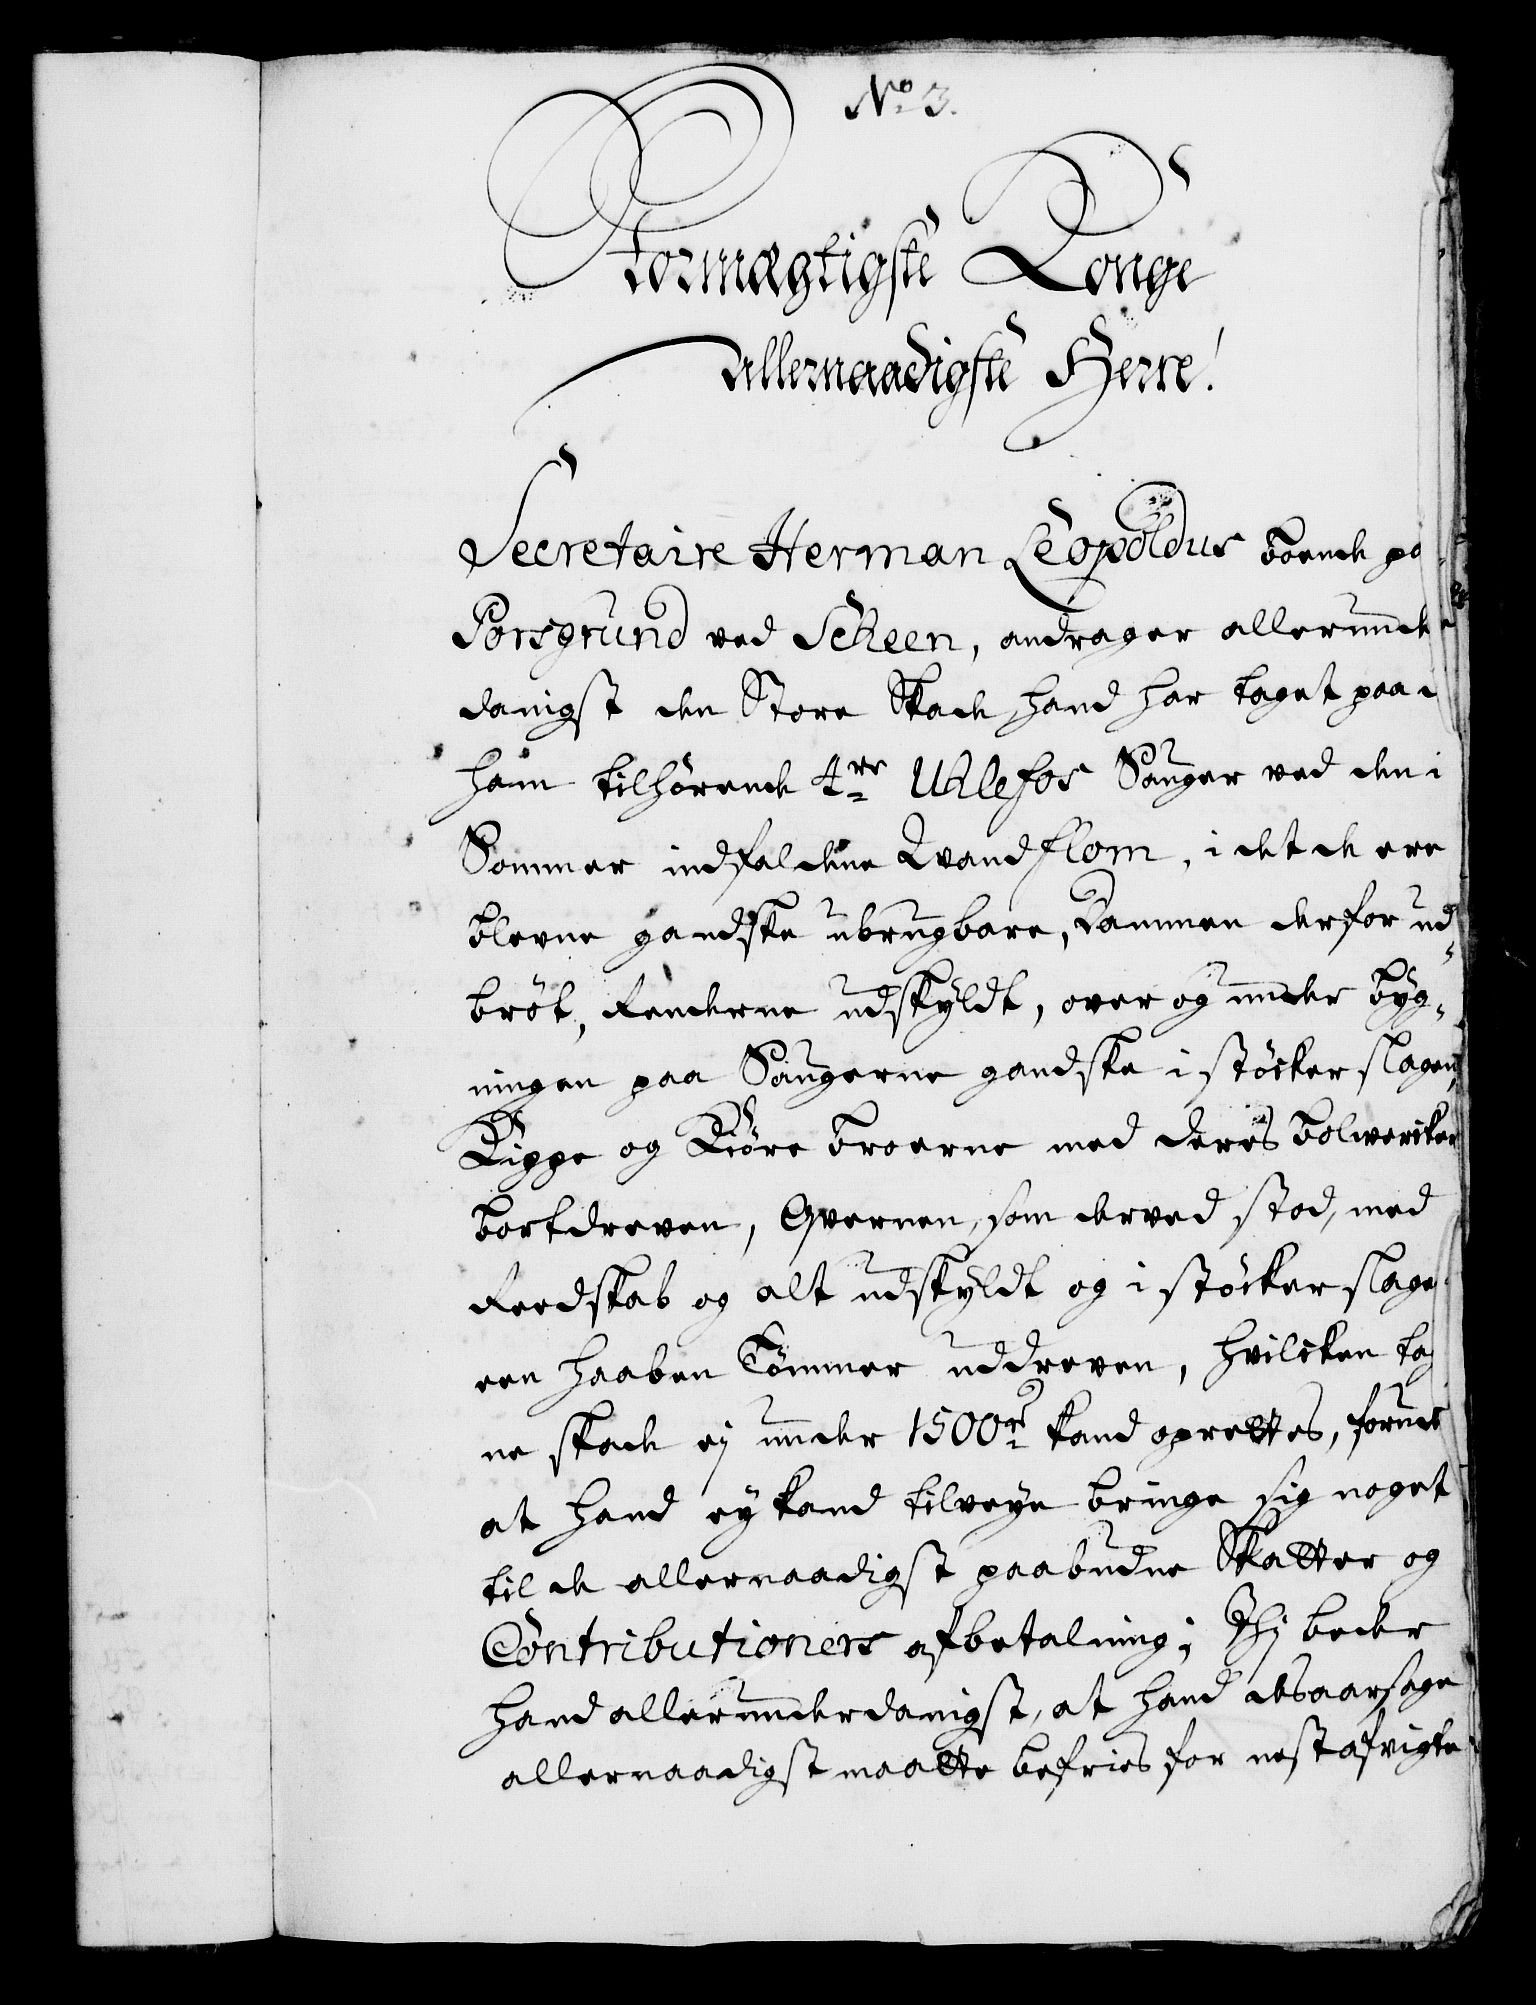 No 3.
Stormægtigste Konge
allernaadigste Herre!
Secretaire Herman Leopoldus boende pa
Porsgrund ved Scheen, andrager allerunde
danigst den Store Skade hand har taget paa
ham tilhørende 4re Uhlefos Sauger ved den i
Sommer indfaldene Vandflom, i det de ere
blevne gandske ubrugbare, Dammen derfor ud¬
brøt, Renderne udskyldt, over og under byg¬
ningen paa Saugerne gandske i støcker slagen,
Ligge og Kiøre broerne med deres bolwercker
bortdreven, Qvernen, som derved stod, med
Reedskab og alt udskyldt og i støcker slage
een haaben Tømmer uddreven, hvilcken tag
ne skade ej under 1500rd kand oprettes, forud
at hand ey kand tilveye bringe sig noget
til de allernaadigst paabudne Skatter og
Contributioners afbetaling; Thj beder
hand allerunderdanigst, at hand desaarsage
allernaadigst maatte befries for nest afvigte